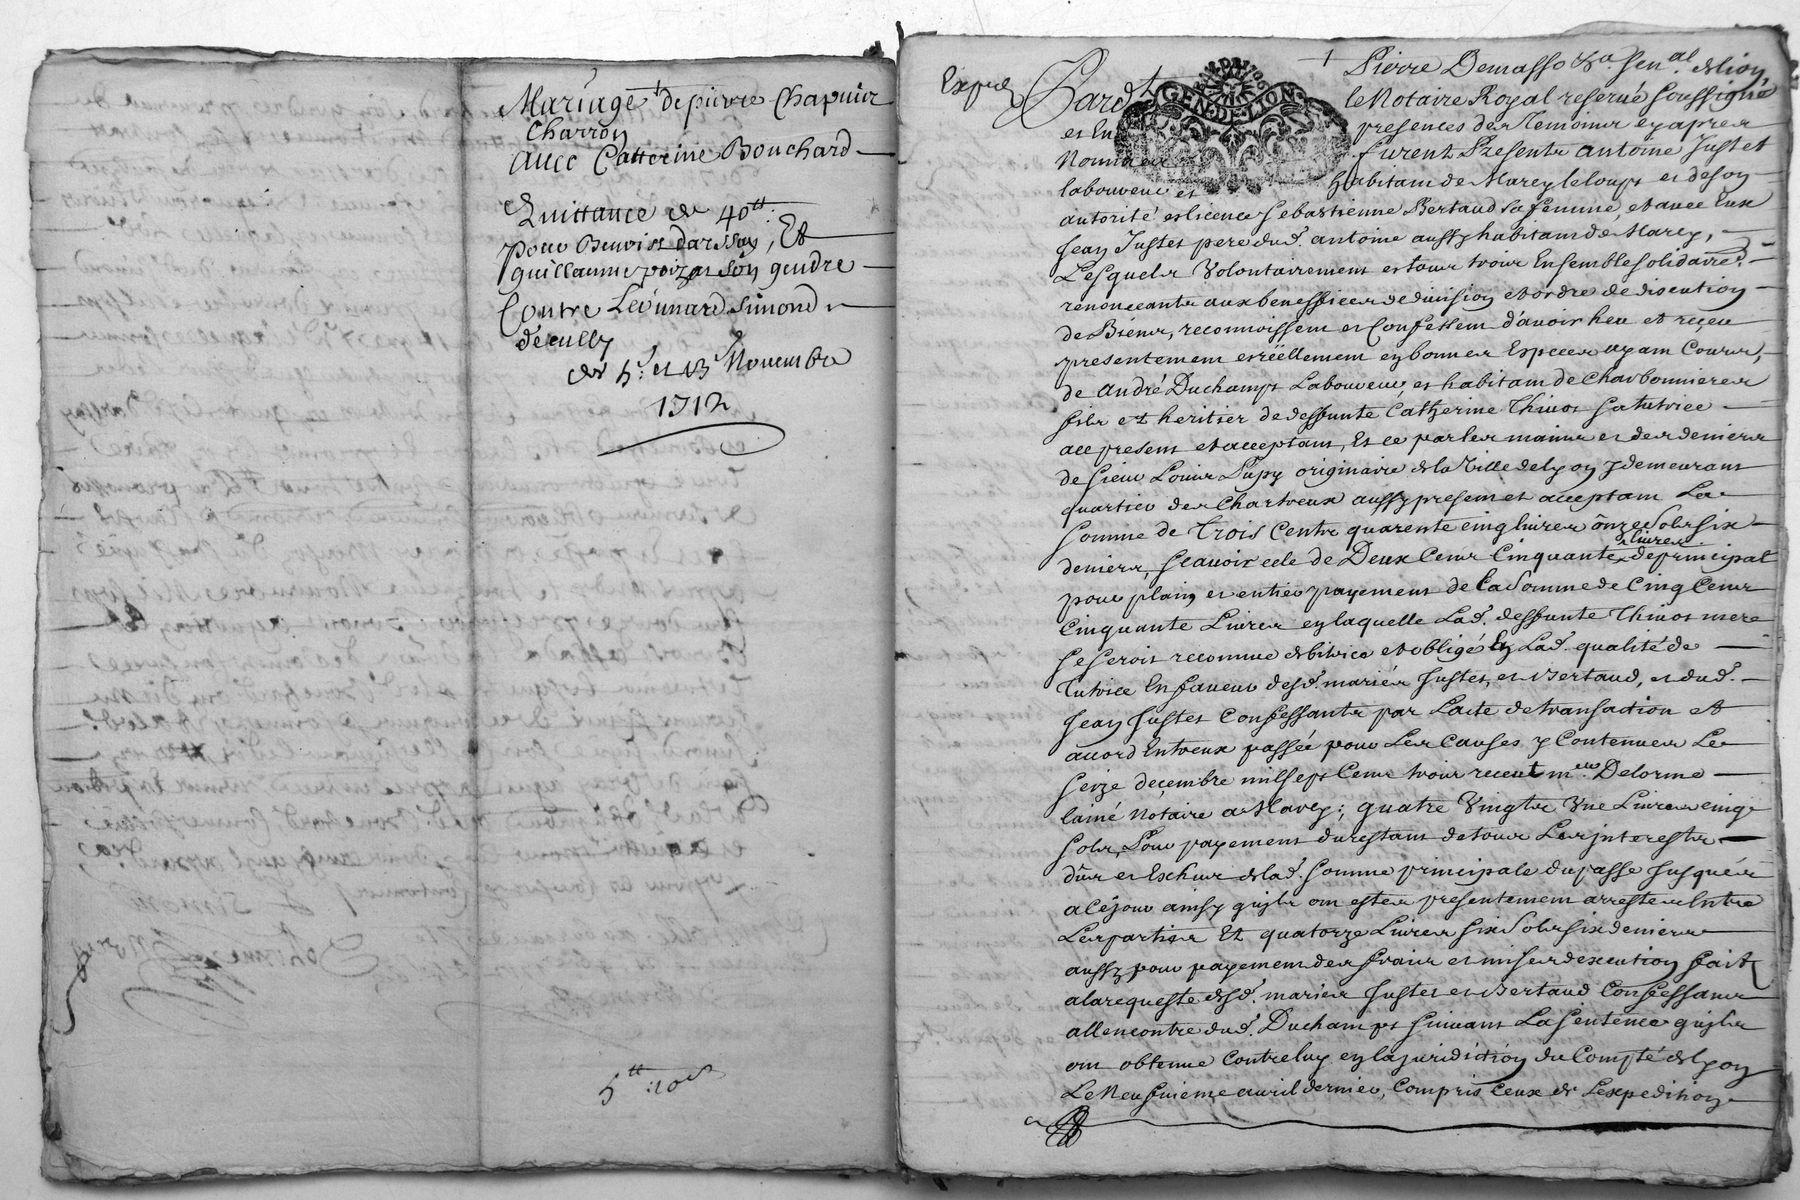 Mariage de pierre Chapuis
Charron
avec Catterine Bouchard
Quittance de 40tt
pour Benoist darssay, Et
guillaume poizat son gendre
Contre Léonnard Simond
d'écully
des 5e et 13 Novembre
1712
5tt :10s
Expié
Pardt Pierre Demasso Sen.al de lion,
GEN·DE·LION
le Notaire Royal reservé soussigné
et En presences des Temoins cy apres
Nommés furent Presents antoine Justet
laboureur et habitant de Marcy le loup et de son
autorité et licence Sebastienne Bertaud sa femme, et avec Eux
Jean Justet pere dud. antoine aussy habitant de Marcy,
Lesquels Volontairement et tous trois Ensemble solidaires
renonceants aux benefices de division et ordre de discution
de Biens, reconnoissent et Confessent d'avoir heu et reçeu
presentement et réellement en bonnes Especes ayant Cours,
de André Duchamps Laboureur et habitant de Charbonnieres
fils et heritier de deffunte Catherine Thivot sa tutrice
acc present et acceptant, Et ce par les mains et des deniers
de sieur Louis Pupy originaire de la Ville de lyon y demeurant
quartier des Chartreux aussy present et acceptant La
somme de Trois Cents quarente cinq livres ônze sols six
deniers, sçavoir celle de Deux Cent Cinquante livres de principal
pour plain et entier payement de la somme de Cinq Cent
Cinquante Livres en laquelle Lad. deffunte Thivot mere
se seroit reconnue debitrice et obligé En Lad. qualité de
Tutrice En faveur desd. mariés Justet, et Bertaud, et dud.
Jean Justet Confessants par Lacte de transaction et
acord Entreux passée pour Les Causes y Contenues Le
seize decembre mil sept Cent trois receut me Delorme
lainé Notaire a Marcy; quatre Vingts Une Livres cinq
sols, Pour payement du restant de tous Les jnterests
dûs et Escheus de lad. somme principale du passe jusques
a Céjour ainsy quils ont estes presentement arrestes Entre
Les parties Et quatorze Livres six sols six deniers
aussy pour payement des fraix et mises dexecution faits
ala requeste desd. maries Justet et Bertaud Confessants
allencontre dud. Duchamps suivant La sentence quils
ont obtenue Contreluy en la juridiction du Compté de lyon
Le Neufvieme avril dernier, Compris Ceux de Lexpedition